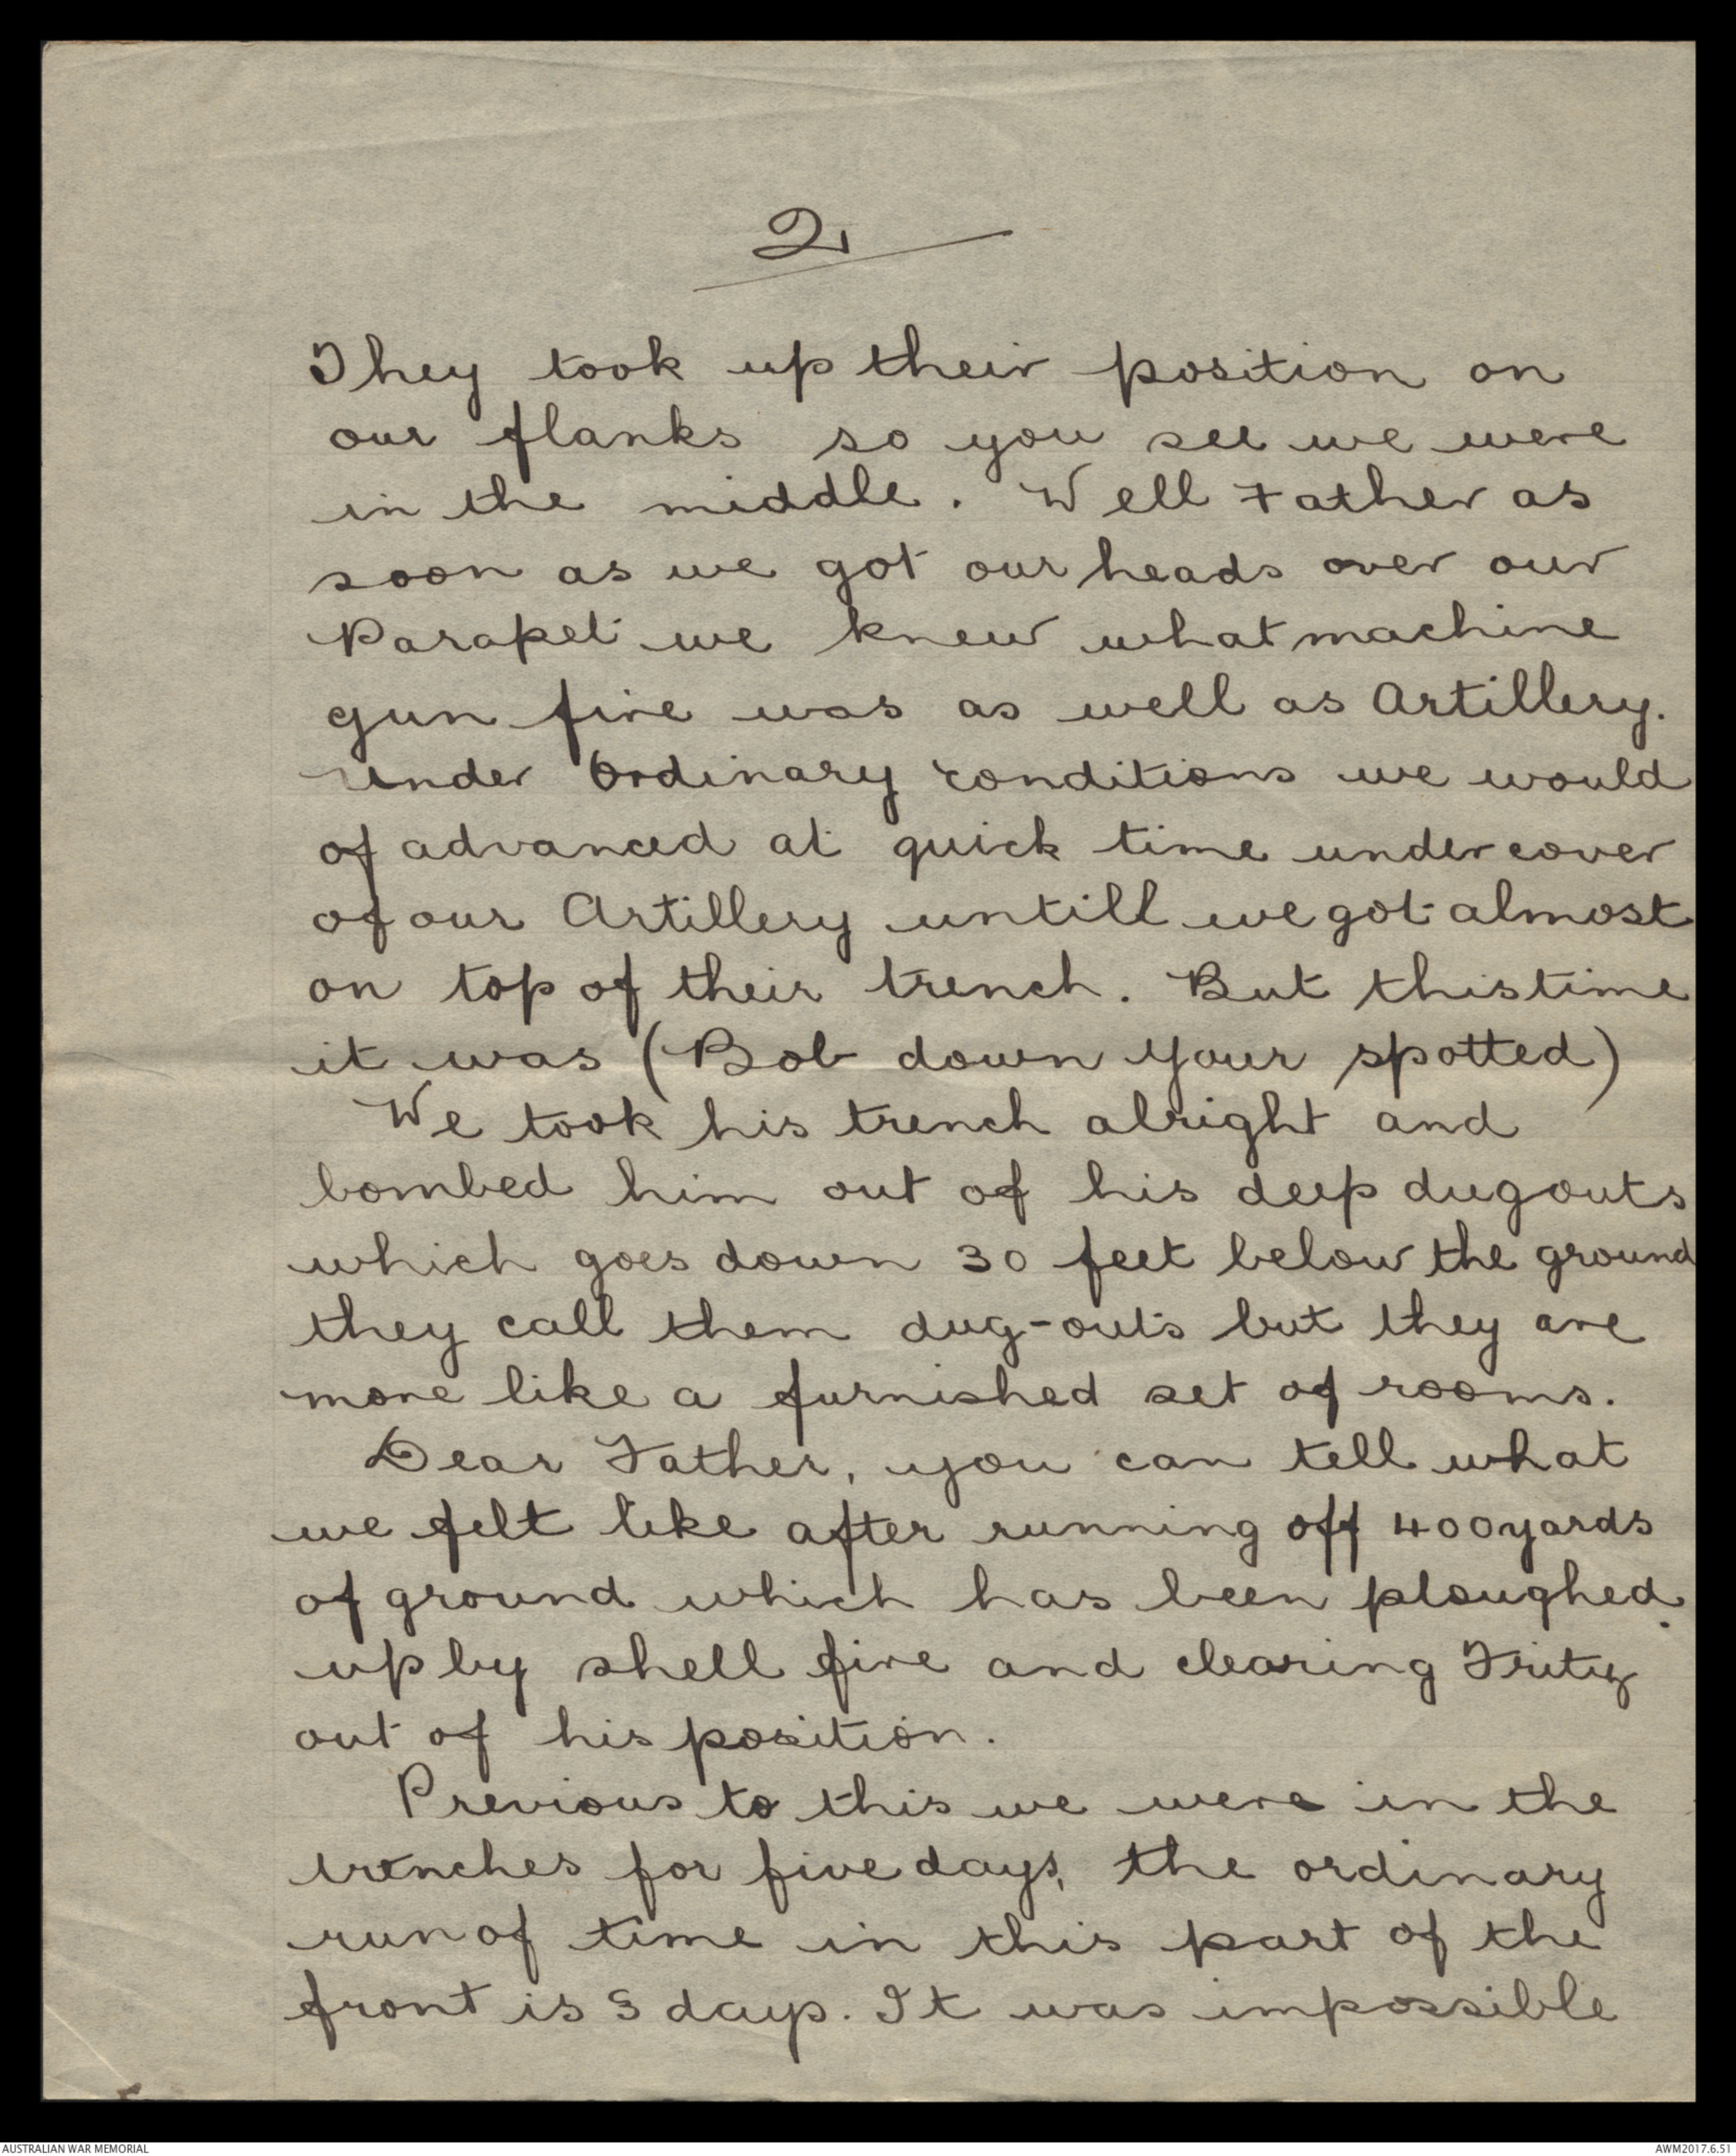 2
They took up their position on
our flanks so you see we were
in the middle. Well Father as
soon as we got our heads over our
Parapet we knew what machine
gun fire was as well as Artillery.
Under Ordinary conditions we would
of advanced at quick time under cover
of our Artillery untill we got almost
on top of their trench. But this time
it was (Bob down your spotted)
We took his trench alright and
bombed him out of his deep dugouts
which goes down 30 feet below the ground
they call them dug-outs but they are
more like a furnished set of rooms.
Dear Father, you can tell what
we felt like after running off 400 yards
of ground which has been ploughed
up by shell fire and clearing Fritz
out of his position.
Previous to this we were in the
trenches for five days, the ordinary
run of time in this part of the
front is 3 days. It was impossible
AUSTRALIAN WAR MEMORIAL
AWM2017.6.51